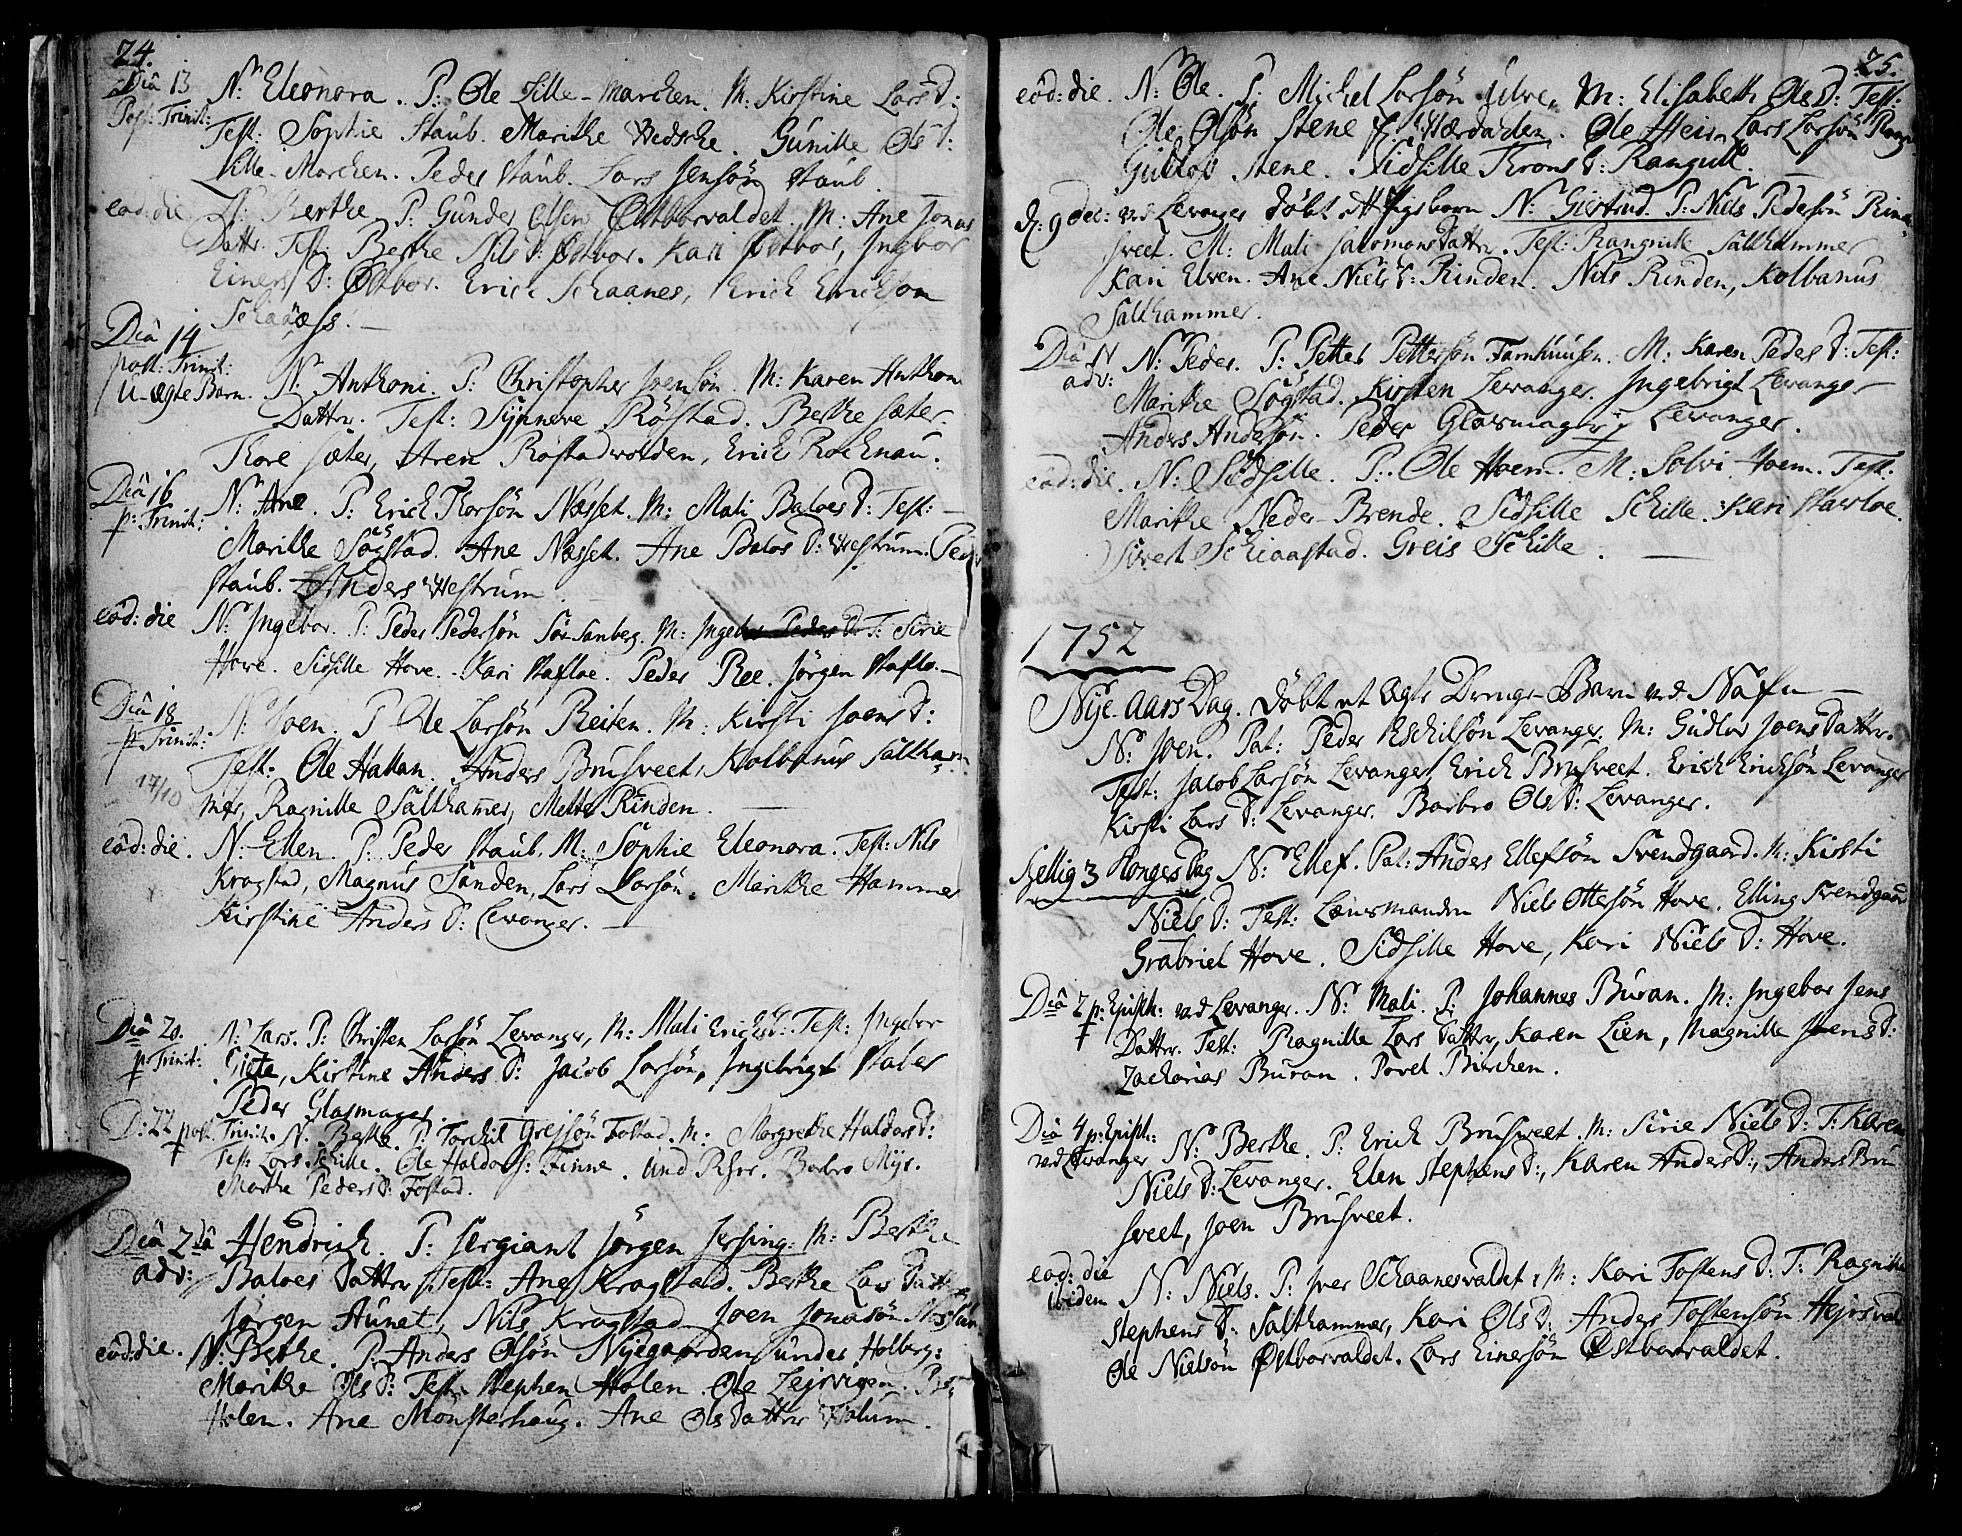 24.
Diâ 13 N: Eleonora. P: Ole Lille-Marchen. M: Kirstine Lars D:
Post: Trinit: Test: Sophie Staub. Marithe Wedsche. Gunille Ols D:
Lille-Marchen. Peder Staub. Lars Jensön Staub.
eâd: die N: Berthe. P: Gunder Olsen Östborvaldet. M: Ane Jonas
Dattr. Test: Berthe Nils D: Östbor. Kari Östbor, Ingebor
Einers D: Östbor. Erick Schaanes, Erick Erickson
Schaaness.
Diâ 14
post: Trinit:
U-ægte Barn. N: Anthoni. P: Christopher Joensön. M: Karen Anthoni
Dattr. Test: Synneve Röstad. Berthe Sæter.
Thore Sæter, Aren Röstadvolden, Erick Rocknau.
Diâ 16 N: Ane. P: Erick Thorsön Næsset. M: Mali Baloes D: Test:
p: Trinit: Marithe Sögstad. Ane Næsset. Ane Balos D: Westrum. Peder
Staub. Anders Westrum.
eâd: die N: Ingebor. P: Peder Pedersön Sör Sanberg. M: Ingebor Peders D: T: Sirie
Hove. Sidsille Hove. Kari Stafloe. Peder Ree. Jörgen Staflo.
Diâ 18 N: Joen. P: Ole Larsön Reiten. M: Kirsti Joens D:
p Trinit: Test: Ole Hallan. Anders Brusveet, Kolbanus Salthamer
17/10 mer, Ragnille Salthamer, Mette Rinden.
eâd: die. N: Ellen. P: Peder Staub. M: Sophie Eleonora. Test: Nils
Kragstad, Magnus Sanden, Lars Larsön. Marithe Hammer
Kirstine Anders D: Levanger.
Diâ 20. N: Lars. P: Christen Larsön Levanger, M: Mali Ericks D: Test: Ingebor
p: Trinit: Giete, Kirstine Anders D: Jacob Larsön, Ingebrigt Staber
Peder Glasmager.
D: 22 post Trinit. N: Berthe. P: Torchil Greisön Fostad. M: Margrethe Haldors D:
Test: Lars Schille. Ole Haldors: Finne. Barbro Myr.
Marthe Peders D: Fostad.
Diâ 2dâ Hendrich. P: Sergiant Jörgen Jersing: M: Berthe
adv: Baloes Datter, Test: Ane Kragstad. Berthe Lars Datter
Jörgen Aunet, Nils Kragstad Joen Jonasön
eâd: die. N: Berthe. P: Anders Olsön Nÿegaarden under Holberg:
Marithe Ols D: Test: Stephen Holen. Ole Lejrvigen.
Holen. Ane Mönsterhaug. Ane Olsdatter Halum.
25.
eâd: die. N: Ole. P: Michel Larsön Julve. M: Elisabeth Ols D: Test:
Ole Olsön Stene Wærdalen. Ole Heir. Lars Larsön
Gullos Stene. Sidsille Throns D: Ranguld.
d: 9 dec: ved Levanger döbt et N: Giertrud. P: Niels Pedersön Rinn-
sveet. M: Mali Salomonsdatter. Test: Rangnille Salthammer
Kari Elven. Ane Niels D: Rinden. Nils Rinden, Kolbanus
Salthammer.
Diâ IV N: Peder. P: Petter Pettersön Farnhuusen. M: Karen Peders D: Test:
adv: Marithe Sögstad. Kirsten Levanger. Ingebrigt Levanger
Anders Andersön. Peder Glasmager i Levanger.
eâd: die. N: Sidsille. P: Ole Hoem. M: Solvi Hoem. Test:
Marithe Neder-Brende. Sidsille Schille. Kari Starloe.
Sivert Schiaastad. Greis Schille.
1752
Nye Aars Dag. döbt et Ægte Drenge-Barn ved Nafn
N: Joen. Pat: Peder Eschilsön Levanger. M: Gudlov Joens datter.
Test: Jacob Larsön Levanger Erick Brusveet. Erick Ericksön Levanger
Kirsti Lars D: Levanger. Barbro Ols D: Levanger.
Hellig 3 Konges Dag N: Ellef. Pat: Anders Ellefsön Svendgaard. M: Kirsti
Niels D: Test: Lensmanden Niels Ottesön Hove. Elling Svendgaard
Grabriel Hove. Sidsille Hove, Kari Niels D: Hove.
Diâ 2 p: Epiph: ved Levanger. N: Mali. P: Johannes Buran. M: Ingebor Jens
Datter. Test: Ragnille Lars datter, Karen Lien, Magnille Joens D:
Zacharias Buran. Povel Birchen.
Diâ 4 p: Epiph: N: Berthe. P: Erick Brusveet. M: Sirie Niels D: T: Karen
ved Levanger Niels D: Levanger. Elen Stephens D:, Karen Anders D:, Anders Bru
sveet, Joen Brusveet.
eâd: die N: Niels. P: Iver Schaanesvaldet. M: Kari Tostens D: T: Ragnille
ibidem Stephens D: Salthammer, Kari Ols D: Anders Tostensön Hejrsvald
Ole Nielsön Östborvaldet. Lars Einersön Östborvaldet.